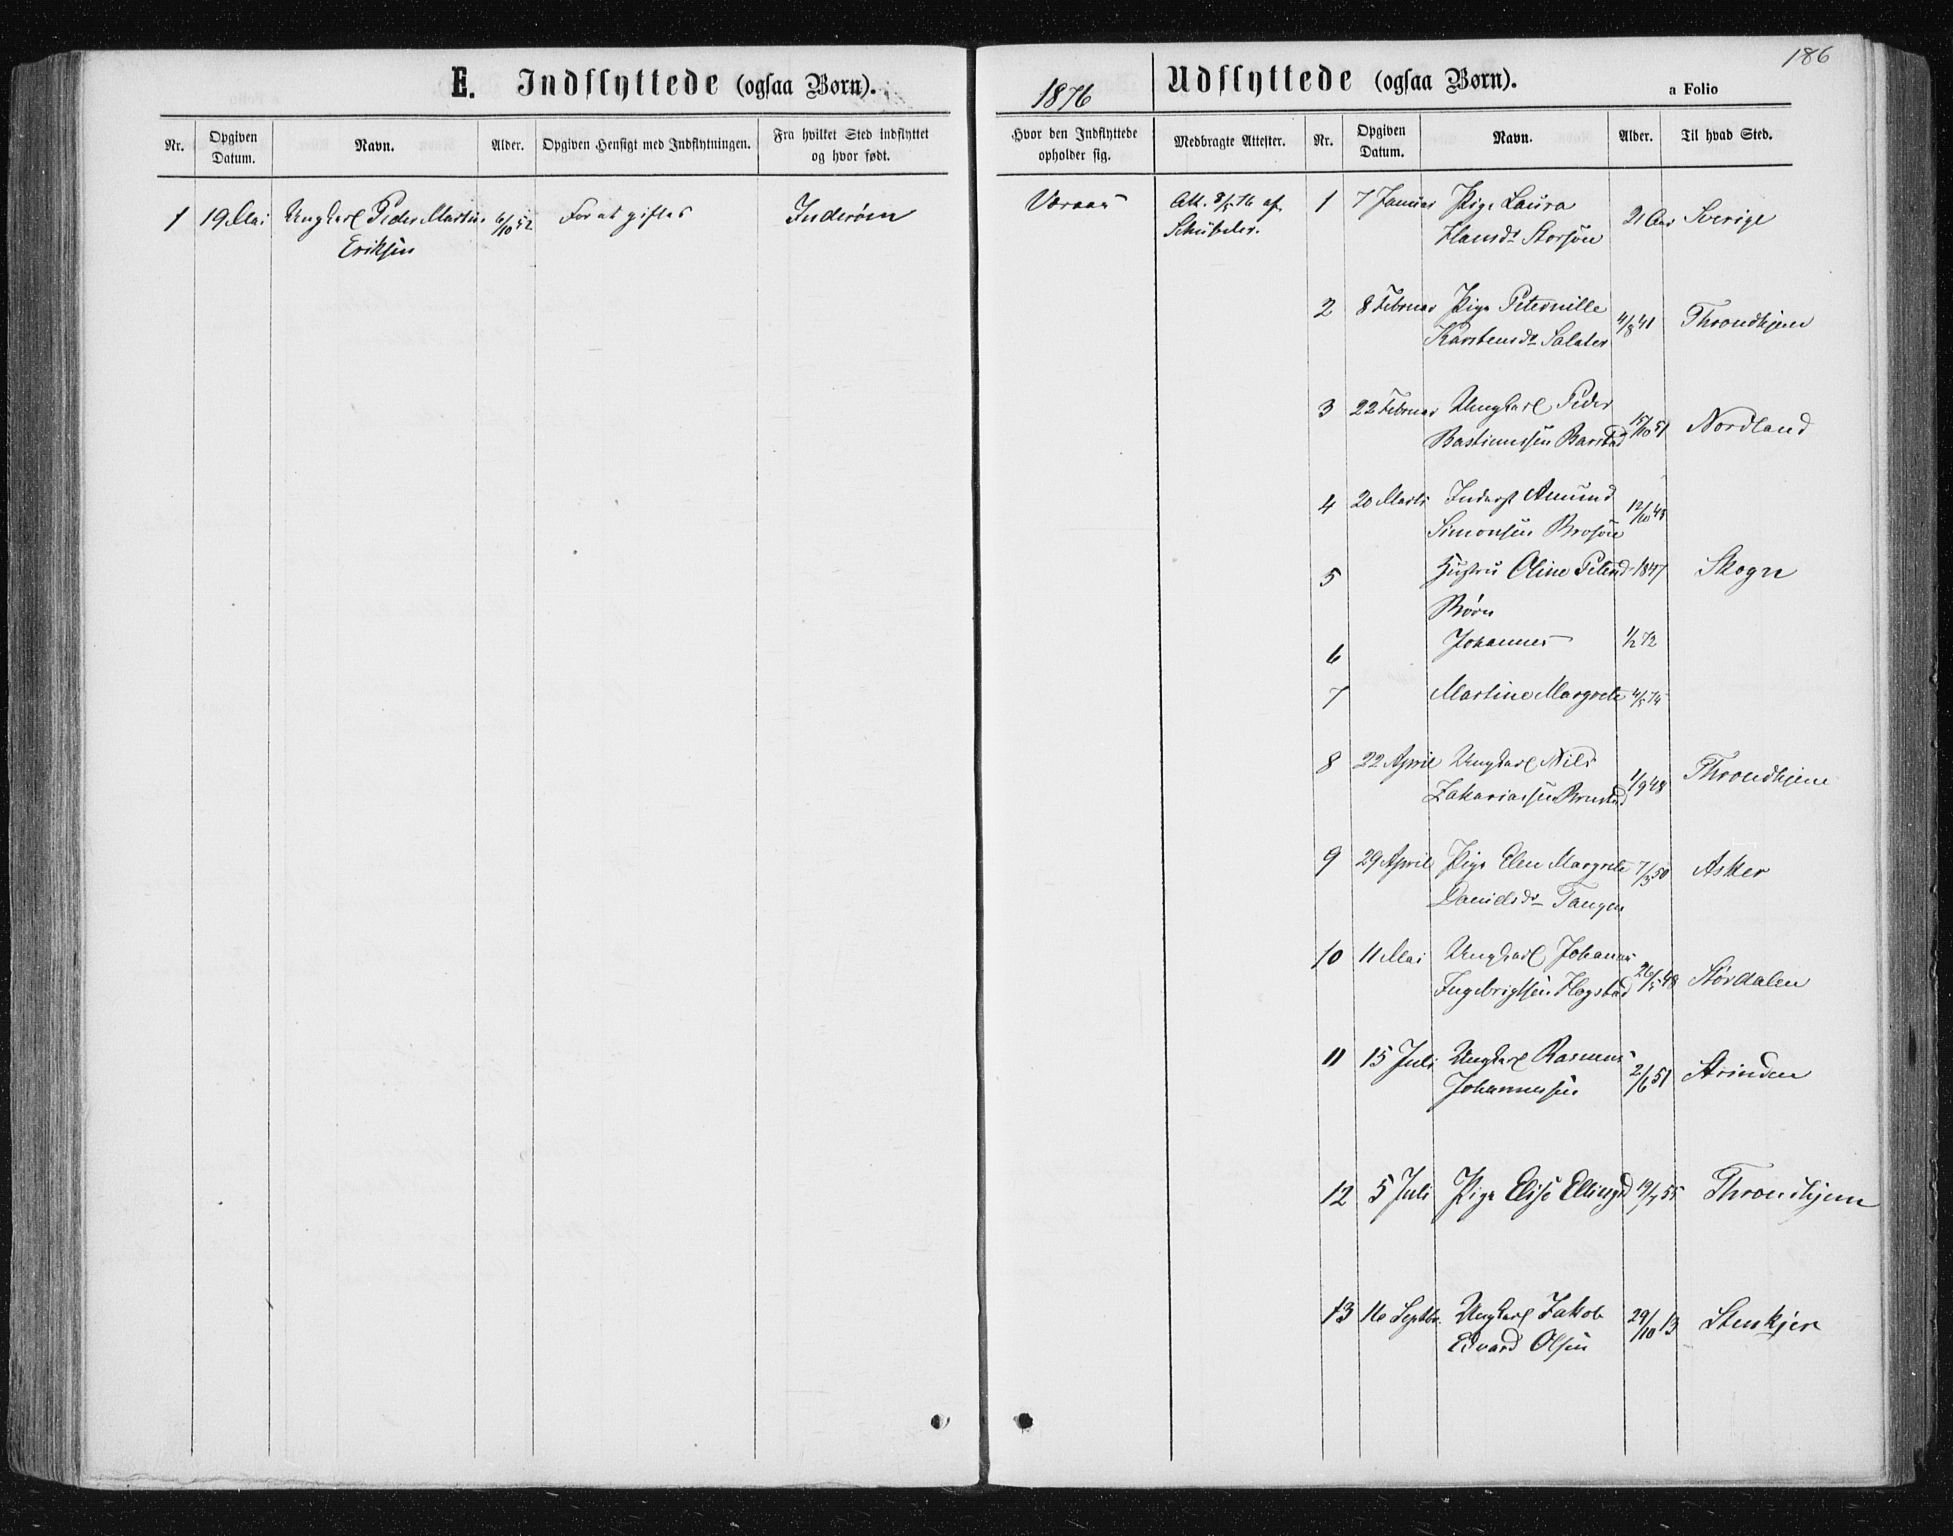 186
E. Indflyttede (ogsaa Børn).
1876
Udflyttede (ogsaa Børn).
a Folio
Nr.
Opgiven Datum.
Navn.
Alder.
Opgiven Hensigt med Indflytningen.
Fra hvilket Sted indflyttet og hvor født.
Hvor den Indflyttede opholder sig.
Medbragte Attester.
Nr.
Opgiven Datum.
Navn.
Alder.
Til hvad Sted.
1 19 Mai Ungkarl Peder Martin 6/10 52 For at giftes Inderøen
Eriksen
Att. af
1 7 Januar Pige Laura 21 Aar Sverige
Hansdr Storsøen
2 8 Februar Pige Peternille 4/8 41 Throndhjem
Karstensdr Salater
3 22 Februar Ungkarl Peder 15/10 51 Nordland
Bastianssen Barstad
4 20 Marts Inderst Amund 12/10 48
Simonsen
5 Hustru Oline Petersd 1847 Skogn
Børn
6 Johannes 1/2 72
7 Martine Margrete 4/5 74
8 22 April Ungkarl Nils 1/9 48 Throndhjem
Zakariassen
9 29 April Pige Elen Margrete 7/3 50 Asker
Danielsdr Tangen
10 11 Mai Ungkarl Johannes 26/5 48 Størdalen
Ingebrigtsen Hogstad
11 15 Juli Ungkarl Rasmus 2/6 51 Strinden
Johannessen
12 5 Juli Pige Elise Ellingsd 19/7 55 Throndhjem
13 16 Septbr. Ungkarl Jakob 29/10 13 Stenkjer
Edvard Olsen